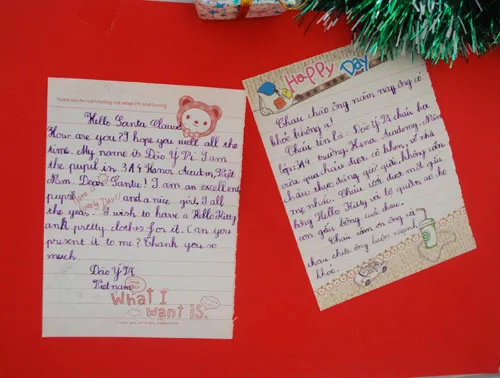 Hello Santa Clause
How are you? I hope you well all the
time. My name is Đào Ý Nhi. I am
the pupil in 3A4 Hanoi Academy, Việt
Nam. Dear Santa! I am an excellent
pupil and a nice girl, I all
Lovely Day!
the year. I wish to have a Hello Kitty
and pretty clothes for it. Can you
present it to me? Thank you so
much.
Đào Ý Nhi
Vietnam
What I
want is.
Happy
Day
Cháu chào ông năm nay ông có
khỏe không ạ!
Cháu tên là: Đào Ý Nhi cháu học
lớp 3A4 trường Hanoi Academy. Năm
vừa qua cháu được cô khen, về nhà
cháu thức đúng giờ giấc không cần
mẹ nhắc. Cháu ước được một gấu
bông Hello Kitty và bộ quần áo cho
con gấu bông của cháu.
Cháu cảm ơn ông và
cháu chúc ông luôn mạnh
khỏe.